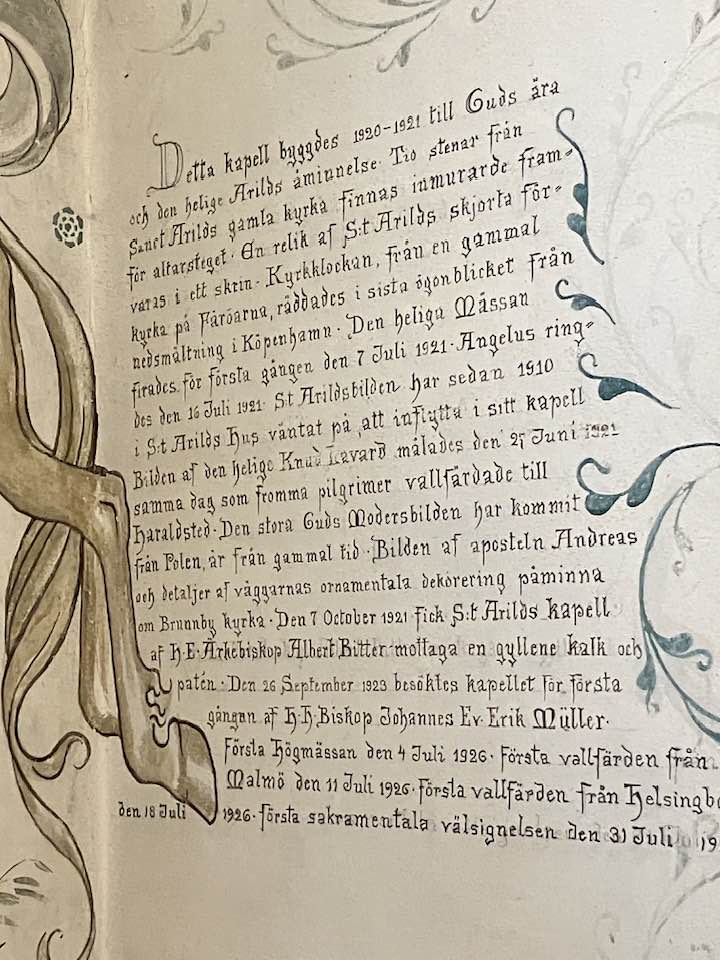 Detta kapell byggdes 1920-1921 till Guds ära
och den helige Arilds åminnelse. Tio stenar från
Sanct Arilds gamla kyrka finnas inmurarde fram-
för altarsteget. En relik af S:t Arilds skjorta för-
varas i ett skrin. Kyrkklockan, från en gammal
kyrka på Färöarna, räddades i sista ögonblicket från
nedsmältning i Köpenhamn. Den heliga Mässan
firades för första gången den 7 Juli 1921. Angelus ring-
des den 16 Juli 1921. S:t Arildsbilden har sedan 1910
i S:t Arilds Hus väntat på att inflytta i sitt kapell
Bilden af den helige Knud Lavard målades den 27 Juni 1921
samma dag som fromma pilgrimer vallfärdade till
Haraldsted. Den stora Guds Modersbilden har kommit
från Polen, är från gammal tid. Bilden af aposteln Andreas
och detaljer af väggarnas ornamentala dekorering påminna
om Brunnby kyrka. Den 7 October 1921 fick S:t Arilds kapell
af H.E. Ärkebiskop Albert Bitter mottaga en gyllene kalk och
patén. Den 26 September 1923 besöktes kapellet för första
gången af H.H. Biskop Johannes Ev. Erik Müller.
Första Högmässan den 4 Juli 1926. Första vallfärden från
Malmö den 11 Juli 1926. Första vallfärden från Helsingb
den 18 Juli 1926. Första sakramentala välsignelsen den 31 Juli 19